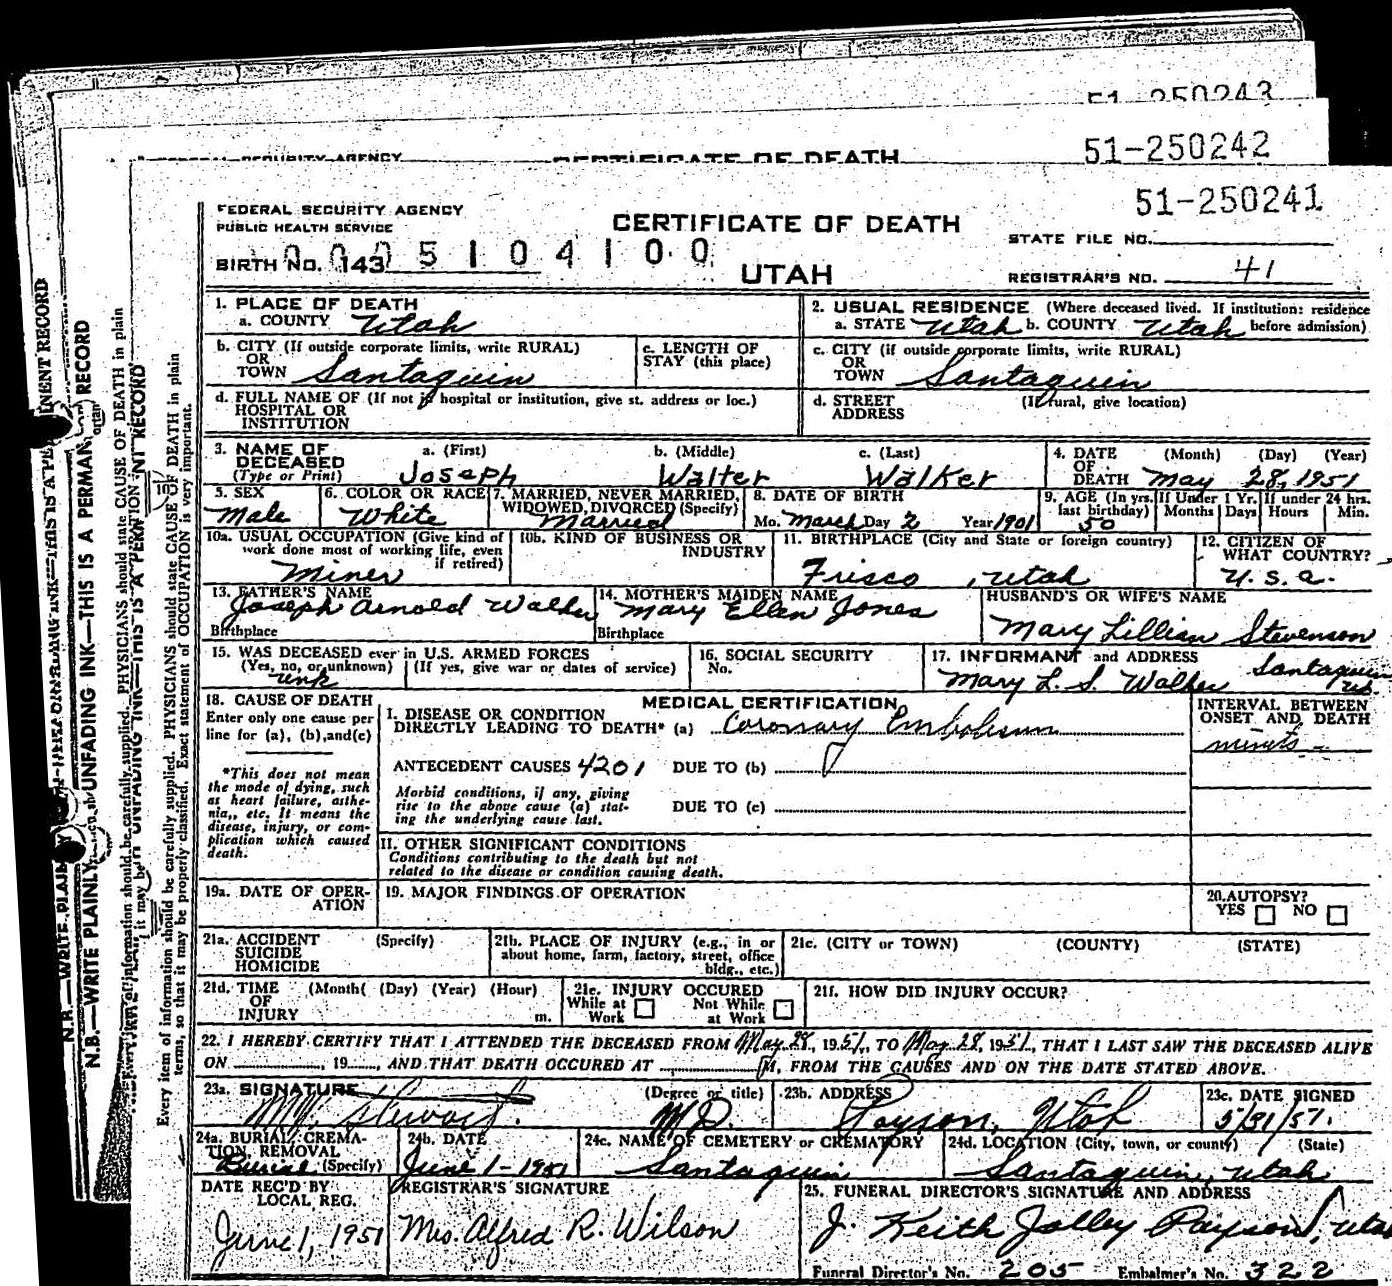 51-250243
51-250242
CERTIFICATE OF DEATH
51-250241
FEDERAL SECURITY AGENCY
PUBLIC HEALTH SERVICE
CERTIFICATE OF DEATH
STATE FILE NO.
BIRTH NO. 143 0005104100
UTAH
REGISTRAR'S NO. 41
1. PLACE OF DEATH
a. COUNTY Utah
2. USUAL RESIDENCE (Where deceased lived. If institution: residence
a. STATE Utah b. COUNTY Utah before admission)
b. CITY (If outside corporate limits, write RURAL)
OR
TOWN Santaquin
c. LENGTH OF
STAY (this place)
c. CITY (if outside corporate limits, write RURAL)
OR
TOWN Santaquin
d. FULL NAME OF (If not is hospital or institution, give st. address or loc.)
HOSPITAL OR
INSTITUTION
d. STREET (If rural, give location)
ADDRESS
3. NAME OF
DECEASED
(Type or Print)
a. (First) b. (Middle) c. (Last)
Joseph Walter Walker
4. DATE (Month) (Day) (Year)
OF
DEATH May 28, 1951
5. SEX
Male
6. COLOR OR RACE
White
7. MARRIED, NEVER MARRIED,
WIDOWED, DIVORCED (Specify)
Married
8. DATE OF BIRTH
Mo. March Day 2 Year 1901
9. AGE (In yrs. last birthday)
50
If Under 1 Yr.
Months Days
If under 24 hrs.
Hours Min.
10a. USUAL OCCUPATION (Give kind of
work done most of working life, even
if retired)
Miner
10b. KIND OF BUSINESS OR
INDUSTRY
11. BIRTHPLACE (City and State or foreign country)
Frisco, Utah
12. CITIZEN OF
WHAT COUNTRY?
U.S.A.
13. FATHER'S NAME
Joseph Arnold Walker
Birthplace
14. MOTHER'S MAIDEN NAME
Mary Ellen Jones
Birthplace
HUSBAND'S OR WIFE'S NAME
Mary Lillian Stevenson
15. WAS DECEASED ever in U.S. ARMED FORCES
(Yes, no, or unknown) (If yes, give war or dates of service)
unk
16. SOCIAL SECURITY
No.
17. INFORMANT and ADDRESS Santaquin
Mary L. S. Walker Ut
18. CAUSE OF DEATH
Enter only one cause per
line for (a), (b), and (c)
*This does not mean
the mode of dying, such
as heart failure, asthe-
nia,, etc. It means the
disease, injury, or com-
plication which caused
death.
MEDICAL CERTIFICATION
I. DISEASE OR CONDITION
DIRECTLY LEADING TO DEATH* (a) Coronary Embolism
ANTECEDENT CAUSES 4201 DUE TO (b)
Morbid conditions, if any, giving
rise to the above cause (a) stat-
ing the underlying cause last.
DUE TO (c)
II. OTHER SIGNIFICANT CONDITIONS
Conditions contributing to the death but not
related to the disease or condition causing death.
INTERVAL BETWEEN
ONSET AND DEATH
minuts -
19a. DATE OF OPER-
ATION
19. MAJOR FINDINGS OF OPERATION
20. AUTOPSY?
YES NO
21a. ACCIDENT (Specify)
SUICIDE
HOMICIDE
21b. PLACE OF INJURY (e.g., in or
about home, farm, factory, street, office
bldg., etc.)
21c. (CITY or TOWN) (COUNTY) (STATE)
21d. TIME (Month( (Day) (Year) (Hour)
OF
INJURY m.
21e. INJURY OCCURED
While at Work Not While at Work
21f. HOW DID INJURY OCCUR?
22. I HEREBY CERTIFY THAT I ATTENDED THE DECEASED FROM May 28, 1951, TO May 28, 1951, THAT I LAST SAW THE DECEASED ALIVE
ON 19 , AND THAT DEATH OCCURED AT M, FROM THE CAUSES AND ON THE DATE STATED ABOVE.
23a. SIGNATURE (Degree or title)
Stewart. M.D.
23b. ADDRESS
Payson, Utah
23c. DATE SIGNED
5/31/51.
24a. BURIAL, CREMA-
TION, REMOVAL
Burial (Specify)
24b. DATE
June 1-1951
24c. NAME OF CEMETERY or CREMATORY
Santaquin
24d. LOCATION (City, town, or county) (State)
Santaquin, Utah
DATE REC'D BY
LOCAL REG.
June 1, 1951
REGISTRAR'S SIGNATURE
Mrs. Alfred R. Wilson
25. FUNERAL DIRECTOR'S SIGNATURE AND ADDRESS
J. Keith Jolley Payson, Utah
Funeral Director's No. 205 Embalmer's No. 322
N.B.—WRITE PLAINLY, UNFADING INK—THIS IS A PERMANENT RECORD
Every item of information should be carefully supplied. PHYSICIANS should state CAUSE OF DEATH in plain
terms, so that it may be properly classified. Exact statement of OCCUPATION is very important.